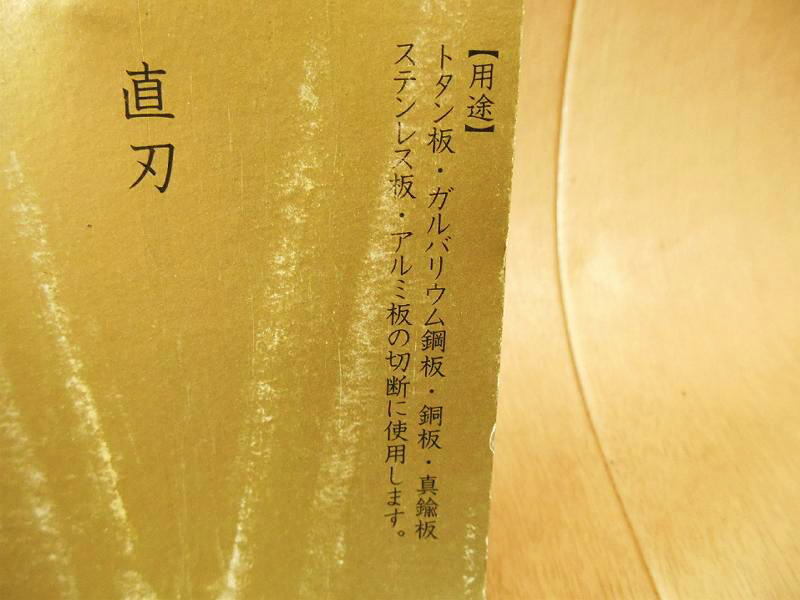 【用途】
トタン板・ガルバリウム鋼板・銅板・真鍮板
ステンレス板・アルミ板の切断に使用します。
直刃